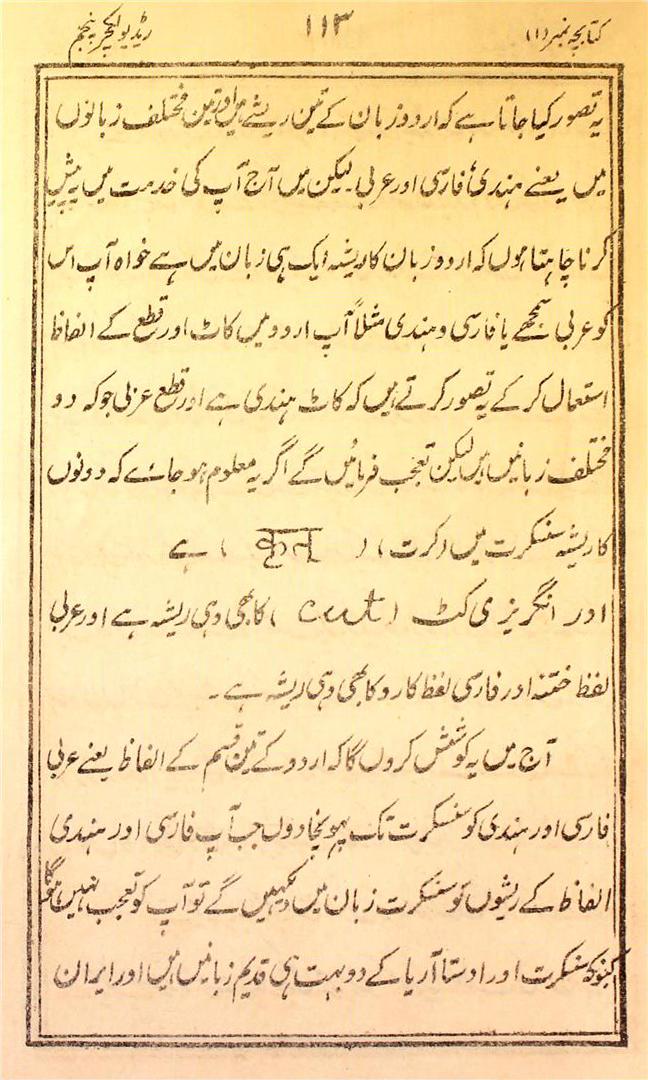 کتابچہ نمبر (۱) ۱۱۳ ریڈیو لکچر پنجم
یہ تصور کیا جاتا ہے کہ اردو زبان کے تین ریشے ہیں اور تین مختلف زبانوں
میں یعنے ہندی، فارسی اور عربی۔ لیکن میں آج آپ کی خدمت میں یہ پیش
کرنا چاہتا ہوں کہ اردو زبان کا ریشہ ایک ہی زبان میں ہے خواہ آپ اس
کو عربی سمجھے یا فارسی و ہندی مثلاً آپ اردو میں کاٹ اور قطع کے الفاظ
استعمال کر کے یہ تصور کرتے ہیں کہ کاٹ ہندی ہے اور قطع عربی جو کہ دو
مختلف زبانیں ہیں لیکن تعجب فرمائیں گے اگر یہ معلوم ہو جائے کہ دونوں
کا ریشہ سنسکرت میں (کرت) ( कृत् ) ہے
اور انگریزی کٹ (cut) کا بھی وہی ریشہ ہے اور عربی
لفظ ختنہ اور فارسی لفظ کارد کا بھی وہی ریشہ ہے ۔
آج میں یہ کوشش کروں گا کہ اردو کے تین قسم کے الفاظ یعنے عربی
فارسی اور ہندی کو سنسکرت تک پہونچا دوں جب آپ فارسی اور ہندی
الفاظ کے ریشوں کو سنسکرت زبان میں دیکھیں گے تو آپ کو تعجب نہیں ہوگا
کیونکہ سنسکرت اور اوستا آریا کے دو بہت ہی قدیم زبانیں ہیں اور ایران